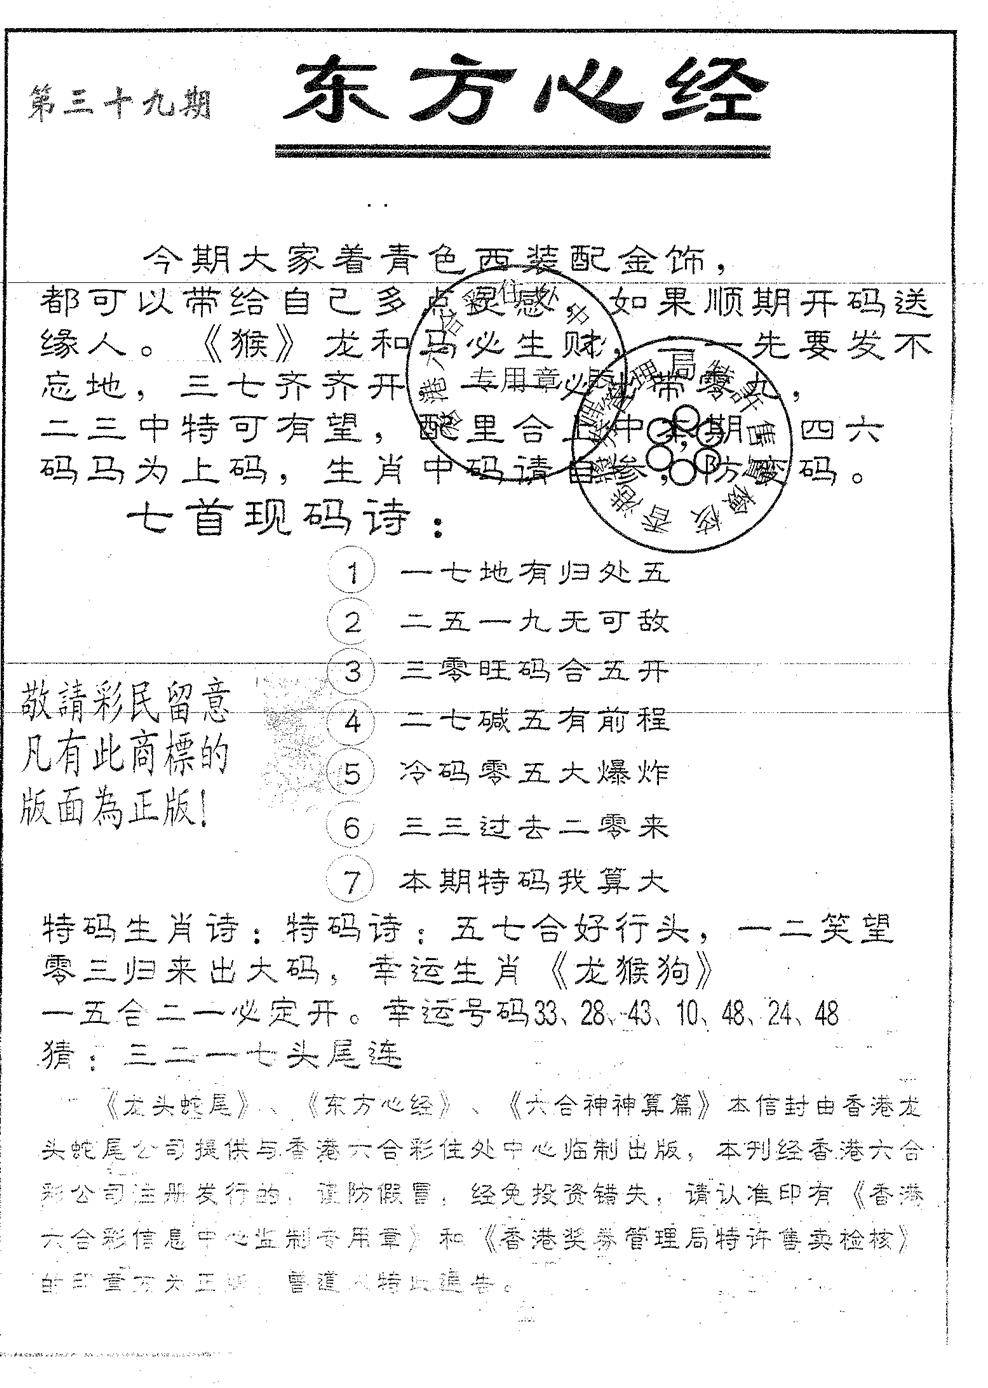 第三十九期
东方心经
今期大家着青色西装配金饰，
都可以带给自己多点灵感，如果顺期开码送
缘人。《猴》龙和马必生财，一一先要发不
忘地，三七齐齐开，一一必出带零九，
二三中特可有望，配里合上中本期，四六
码马为上码，生肖中码请自参，防 码。
专用章
七首现码诗：
① 一七地有归处五
② 二五一九无可敌
③ 三零旺码合五开
④ 二七碱五有前程
⑤ 冷码零五大爆炸
⑥ 三三过去二零来
⑦ 本期特码我算大
敬請彩民留意
凡有此商標的
版面為正版！
特码生肖诗：特码诗：五七合好行头，一二笑望
零三归来出大码，幸运生肖《龙猴狗》
一五合二一必定开。幸运号码33、28、43、10、48、24、48
猜：三二一七头尾连
《龙头蛇尾》、《东方心经》、《六合神神算篇》本信封由香港龙
头蛇尾公司提供与香港六合彩住处中心临制出版，本刊经香港六合
彩公司注册发行的，谨防假冒，经免投资错失，请认准印有《香港
六合彩信息中心监制专用章》和《香港奖券管理局特许售卖检核》
的印章方为正版，曾道人特此通告。